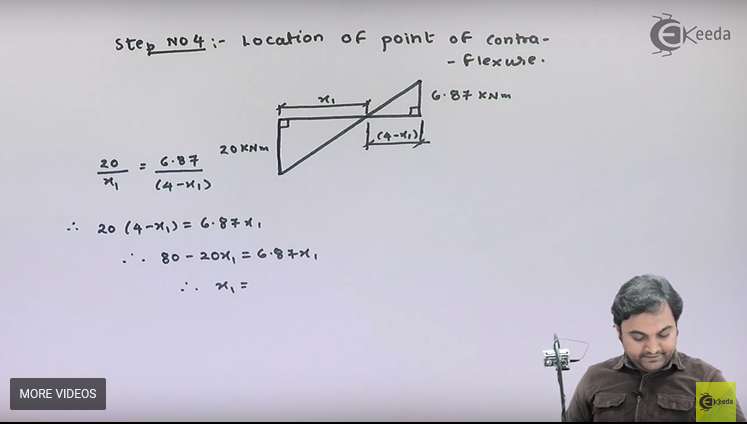 Step NO 4 :- Location of point of contra-
- flexure.
EKeeda
x₁
6.87 KNm
20 KNm
(4-x₁)
20/x₁ = 6.87/(4-x₁)
∴ 20 (4-x₁) = 6.87x₁
∴ 80 - 20x₁ = 6.87x₁
∴ x₁ =
MORE VIDEOS
EKeeda